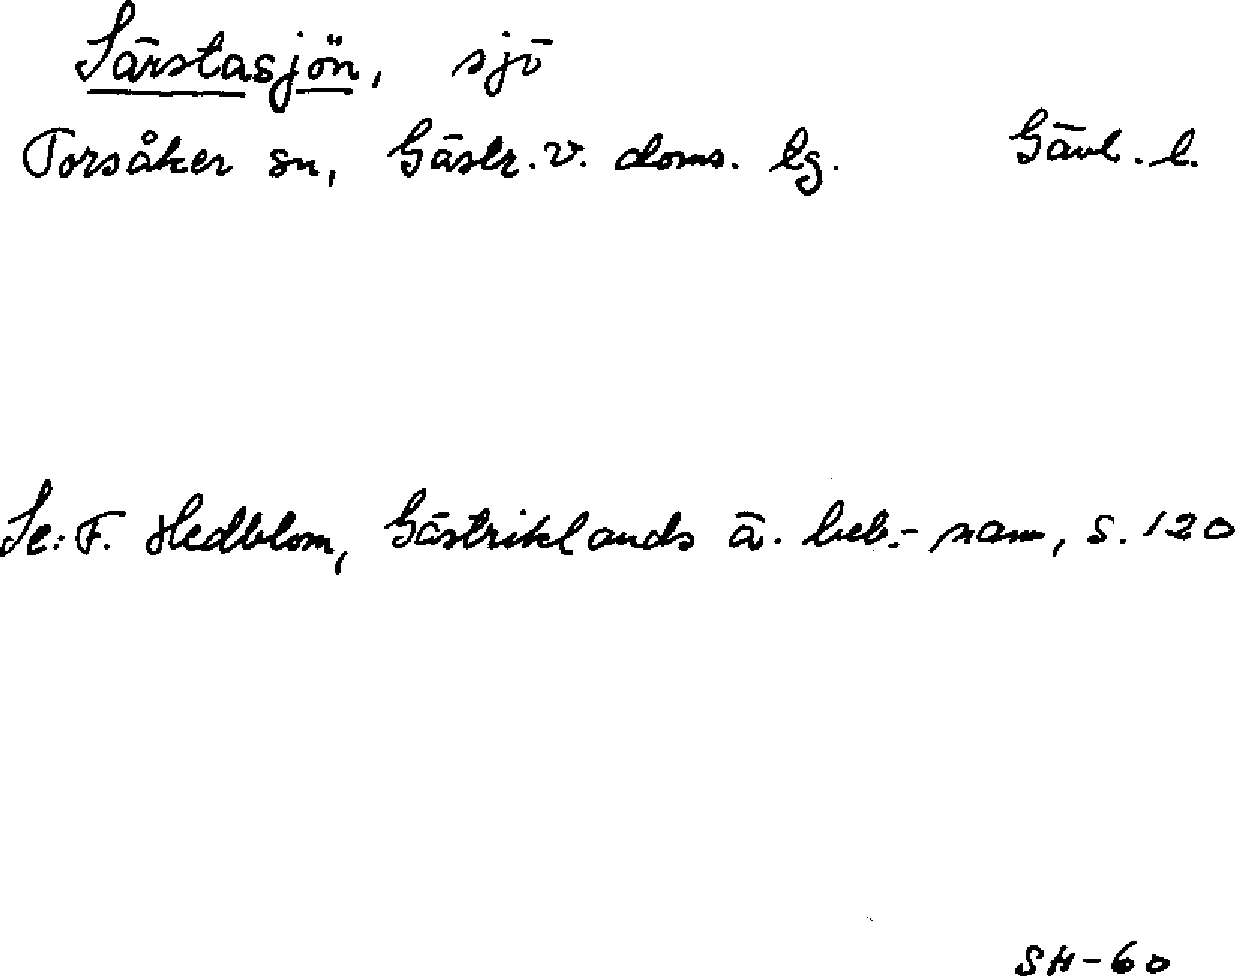 Särstasjön, sjö
Torsåker sn, Gästr. v. doms. lg. Gävl. l.
Se: F. Hedblom, Gästriklands ä. beb.-namn, s. 120
SH-60